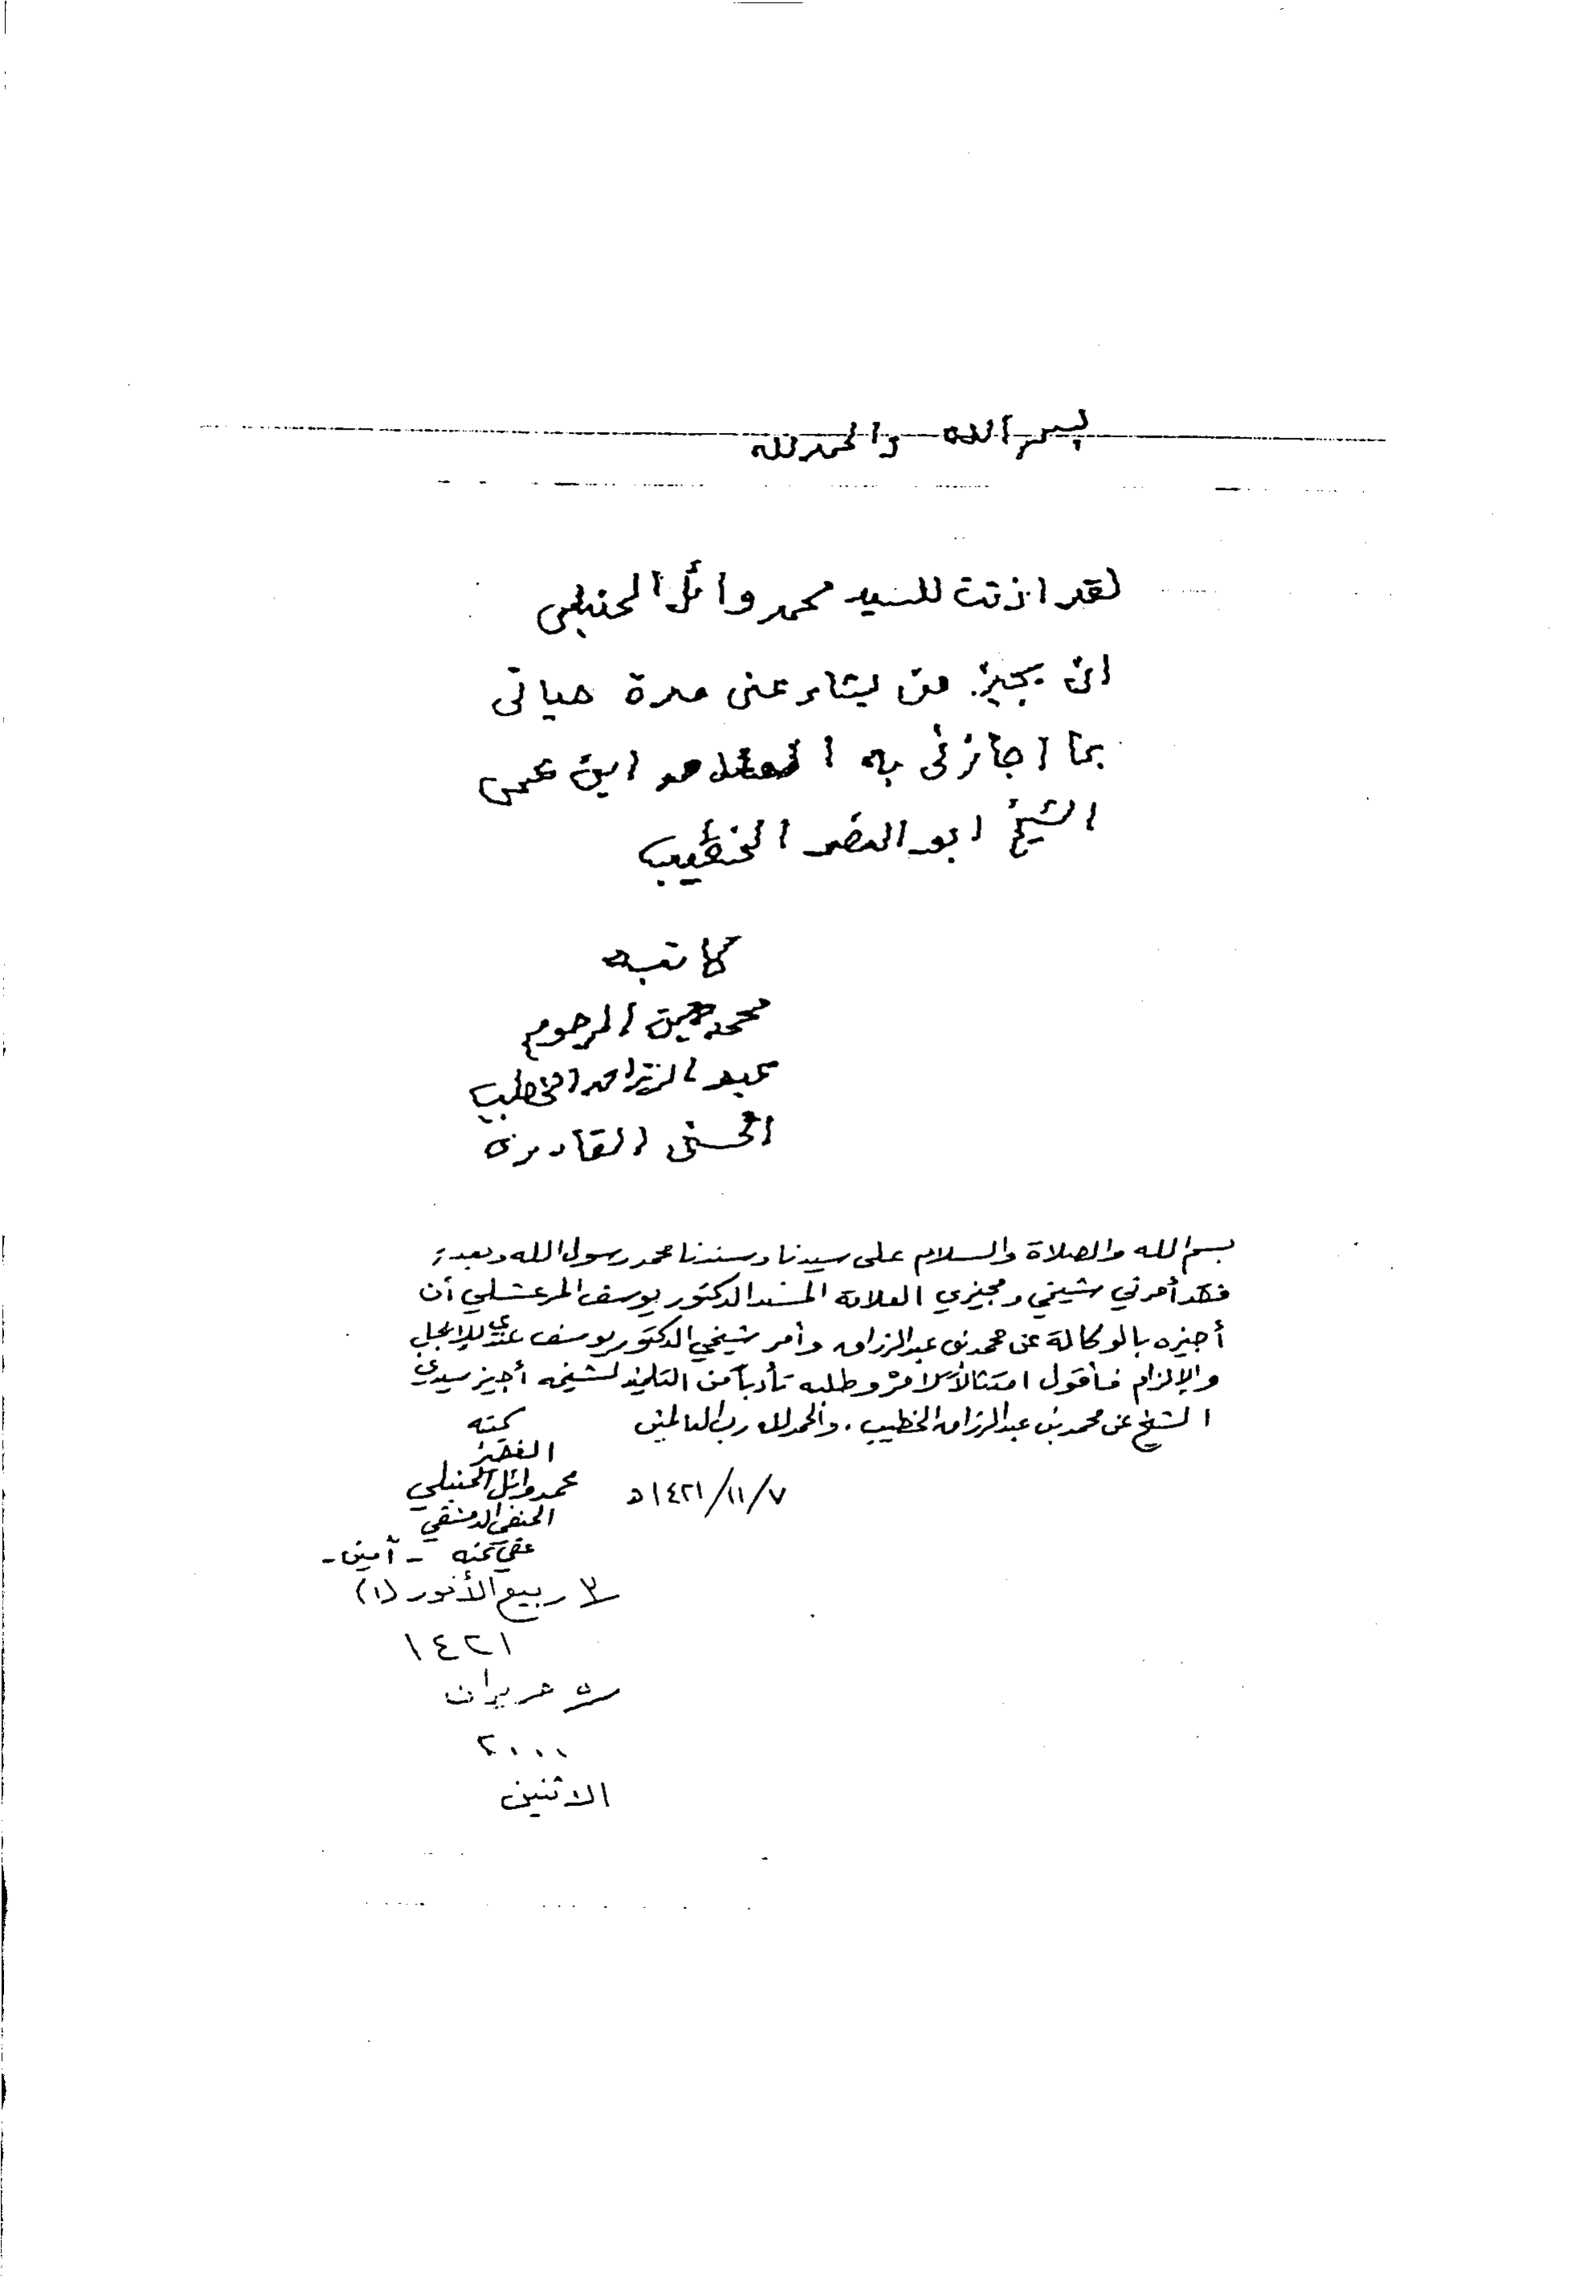 بسم الله والحمد لله
لقد اذنت للسيد محمد وائل الحنبلي
ان يجيز من يشاء عنى مدة حياتى
بما اجازنى به ابن عمى
الشيخ ابو النصر الخطيب
كاتبه
محمد بن المرحوم
عبد الرزاق الخطيب
الحسنى القادرى
بسم الله والصلاة والسلام على سيدنا وسندنا محمد رسول الله وبعد:
فقد أمرني شيخي ومجيزي العلامة المسند الدكتور يوسف المرعشلي أن
أجيزه بالوكالة عن محمد بن عبد الرزاق وأمر شيخي الدكتور يوسف عندي للإيجاب
والإلزام فأقول امتثالاً لأمره وطلبه تأدباً من التلميذ لشيخه أجيز سيدي
الشيخ عن محمد بن عبد الرزاق الخطيب. والحمد لله رب العالمين
كتبه
الفقير
محمد وائل الحنبلي
٧/١١/١٤٢١ه
الحنفي الدمشقي
عفي عنه - آمين -
٣ ربيع الأنور (١)
١٤٢١
٥ حزيران
٢٠٠٠
الاثنين